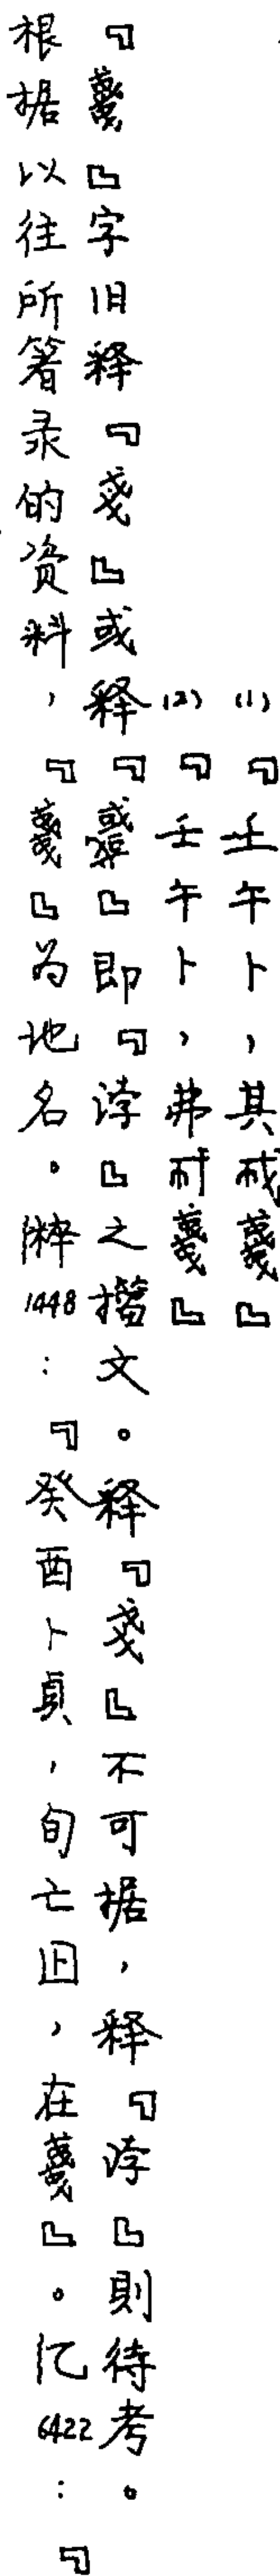 (1)『壬午卜，其𢦏』
(2)『壬午卜，弗』
『』字旧释『戔』或释『』即『浡』之籀文。释『戔』不可据，释『浡』則待考。
根据以往所箸录的资料，『』为地名。粹1448：『癸酉卜貞，旬亡𡆥，在』。忆6422：『